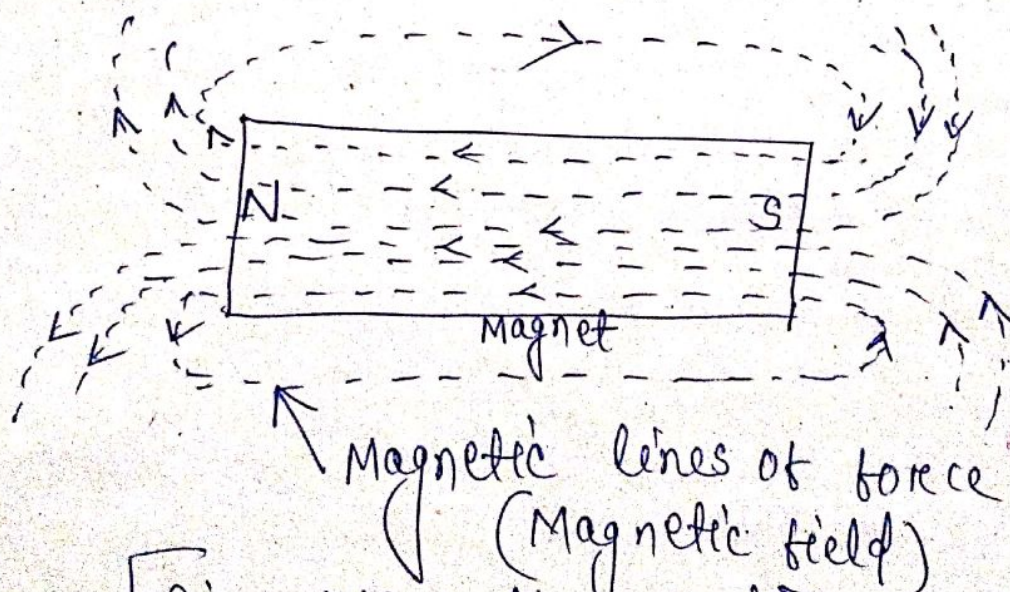 N S
Magnet
Magnetic lines of force
(Magnetic field)